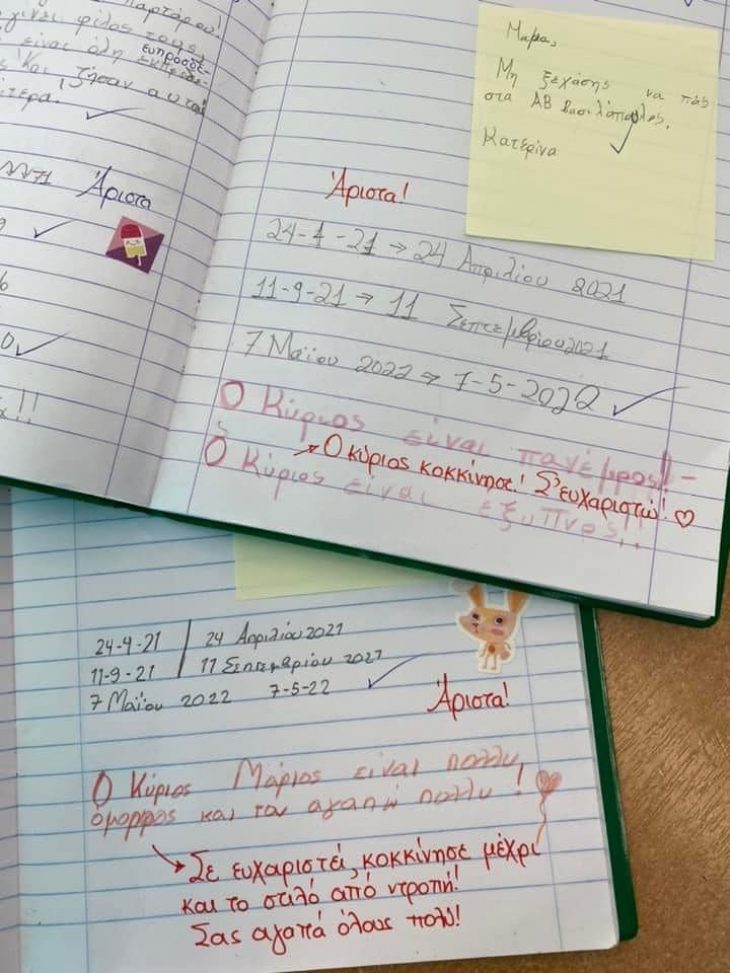 χαρτάρου!
γίνει φίλος τους,
είναι όλη ευπρόσδε-
και ζήσαν αυτοί
τερα!
Άριστα
Μαμα,
Μη ξεχάσης να πας
στα ΑΒ βασιλόπουλος.
Κατερίνα
Άριστα!
24-4-21 → 24 Απριλίου 2021
11-9-21 → 11 Σεπτεμβρίου 2021
7 Μαΐου 2022 → 7-5-2022
Ο Κύριος είναι πανέμρος!!
→ Ο κύριος κοκκίνησε! Σ'ευχαριστώ! ♡
Ο Κύριος είναι εξυπνρς!!
24-4-21 | 24 Απριλίου 2021
11-9-21 | 11 Σεπτεμβρίου 2021
7 Μαΐου 2022 7-5-22
Άριστα!
Ο Κύριος Μάριος είναι πολλυ
όμορρος και τον αγαπώ πολλυ!
→ Σε ευχαριστεί, κοκκίνησε μέχρι
και το στιλό από ντροπή!
Σας αγαπά όλους πολύ!